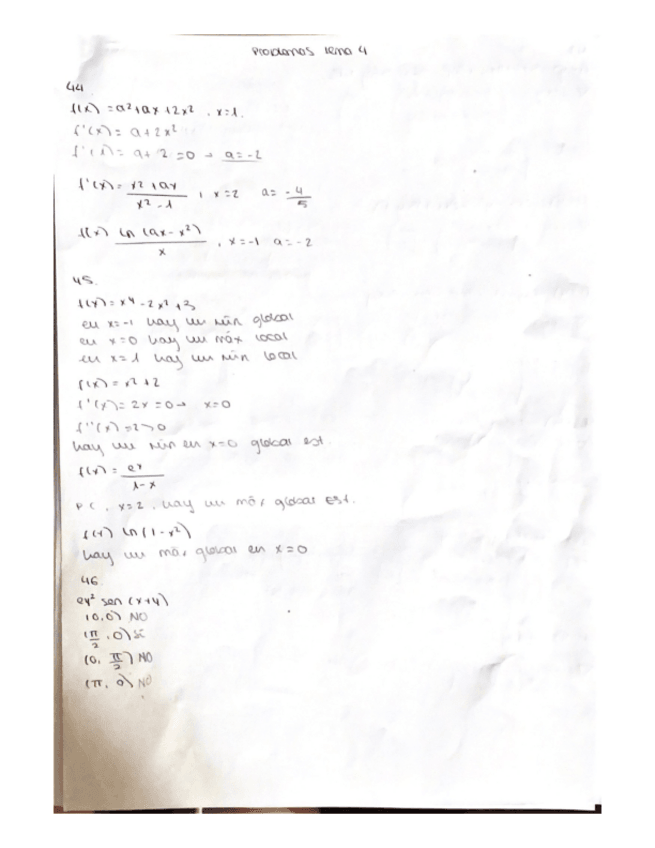 Problemas tema 4
44.
f(x) = a²+ax+2x² , x=1.
f'(x) = a+2x²
f'(1) = a+2 =0 → a=-2
f'(x) = x²+ax / x²-1 , x=2 a= -4/5
f(x) ln (ax-x²) / x , x=-1 a=-2
45.
f(x) = x⁴-2x²+3
en x=-1 hay un mín global
en x=0 hay un máx local
en x=1 hay un mín local
f(x) = x²+2
f'(x) = 2x =0 → x=0
f''(x) =2>0
hay un mín en x=0 global est.
f(x) = eˣ / 1-x
PC , x=2 , hay un máx global est.
f(x) ln(1-x²)
hay un máx global en x=0
46.
ey² sen (x+y)
(0,0) NO
(π/2 ,0) SÍ
(0, π/2) NO
(π, 0) NO